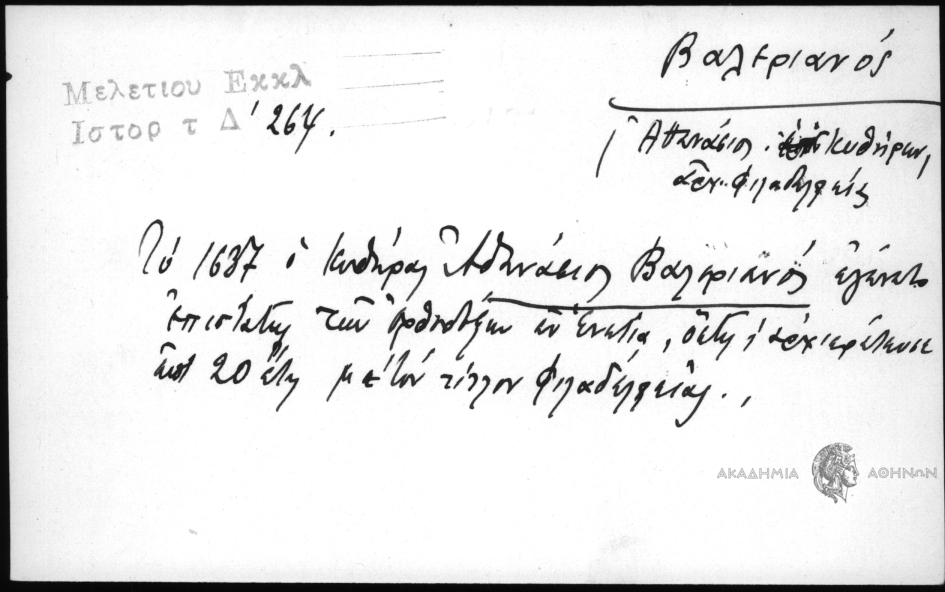 Βαλεριανός
Μελετιου Εκκλ
Ιστορ τ Δ' 264.
Ἀθανάσιος Κυθήρων,
ἀρχ. Φιλαδελφείας
Τό 1637 ὁ Κυθήρων Ἀθανάσιος Βαλεριανός ἐγένετο
ἐπιστάτης τῶν ὀρθοδόξων ἐν Ἑνετίᾳ, ὅστις ἀρχιεράτευσε
ἐπί 20 ἔτη μέ τόν τίτλον Φιλαδελφείας.
ΑΚΑΔΗΜΙΑ ΑΘΗΝΩΝ